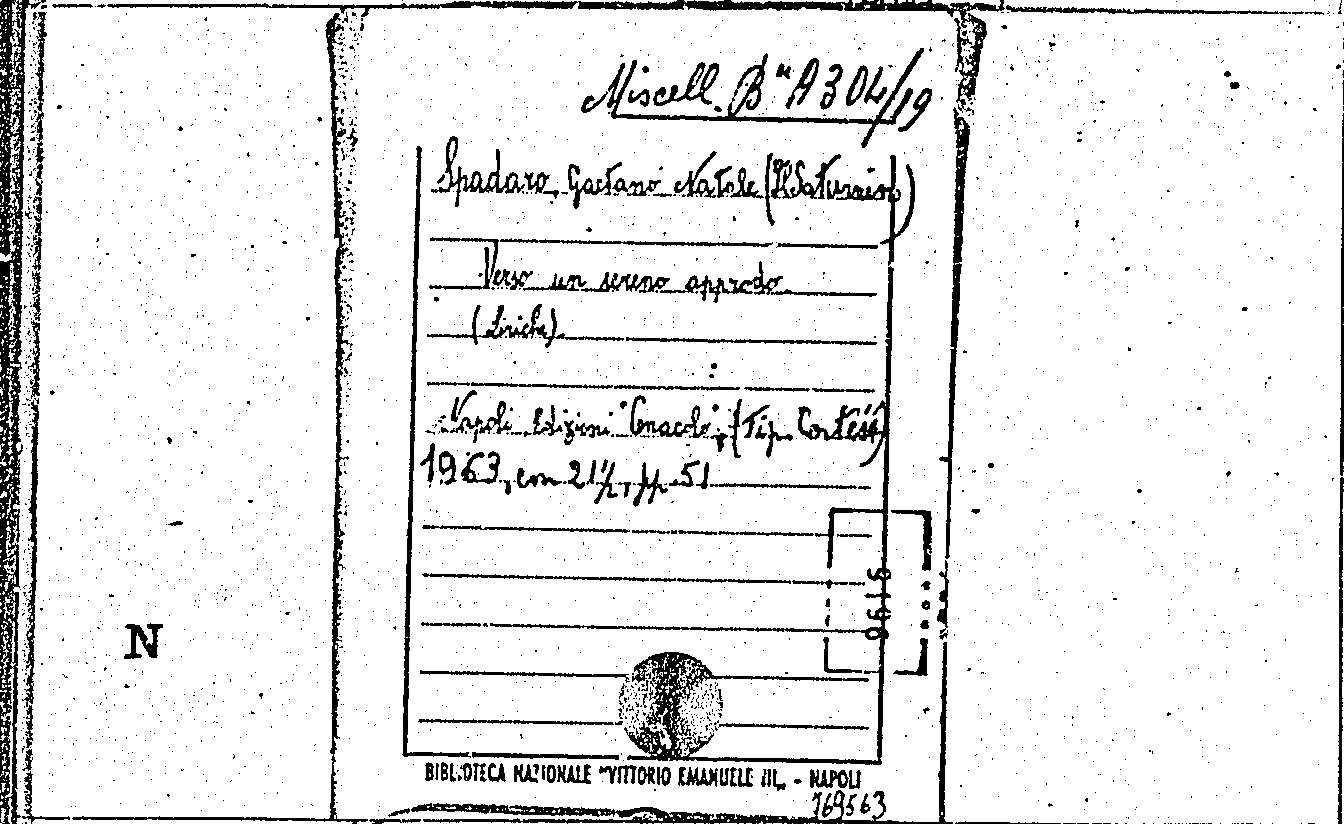 Miscell. Bª A 304/19
Spadaro, Gaetano Natale (Il Saturnino)
Verso un sereno approdo.
(Liriche).
Napoli, Edizioni "Cenacolo", (Tip. Cortese)
1963, cm 21½, pp. 51
9196
N
BIBLIOTECA NAZIONALE "VITTORIO EMANUELE III„ - NAPOLI
769563